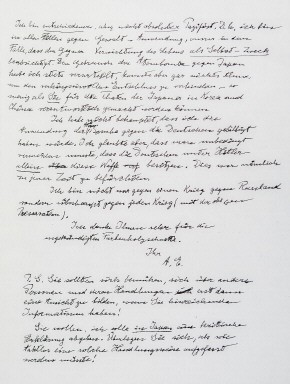 Ich bin entschiedener, aber nicht absoluter Pazifist, d.h. ich bin
in allen Fällen gegen Gewalt-Anwendung, ausser in dem
Falle, dass der Gegner Vernichtung des Lebens als Selbst-Zweck
beabsichtigt. Den Gebrauch der Atombombe gegen Japan
habe ich stets verurteilt, konnte aber gar nichts thun,
um den verhängnisvollen Entschluss zu verhindern - so
wenig als Sie für die Thaten der Japaner in Korea und
China verantwortlich gemacht werden können.
Ich habe nicht behauptet, dass ich die
Anwendung der Bombe gegen die Deutschen gebilligt
haben würde. Ich glaubte aber, dass man unbedingt
vermeiden musste, dass die Deutschen unter Hitler
allein diese Waffe besitzen. Dies war nämlich
zu jener Zeit zu befürchten.
Ich bin nicht nur gegen einen Krieg gegen Russland
sondern überhaupt gegen jeden Krieg (mit der obigen
Reservation).
Ich danke Ihnen
angekündigten
Ihr
A. E.
P.S. Sie sollten sich bemühen, sich über andere
Personen und deren Handlungen nur dann
eine Ansicht zu bilden, wenn Sie hinreichende
Information haben!
Sie wollen, ich solle in Japan eine
Erklärung abgeben. Überlegen Sie sich, als wie
eine solche aufgefasst
werden müsste!